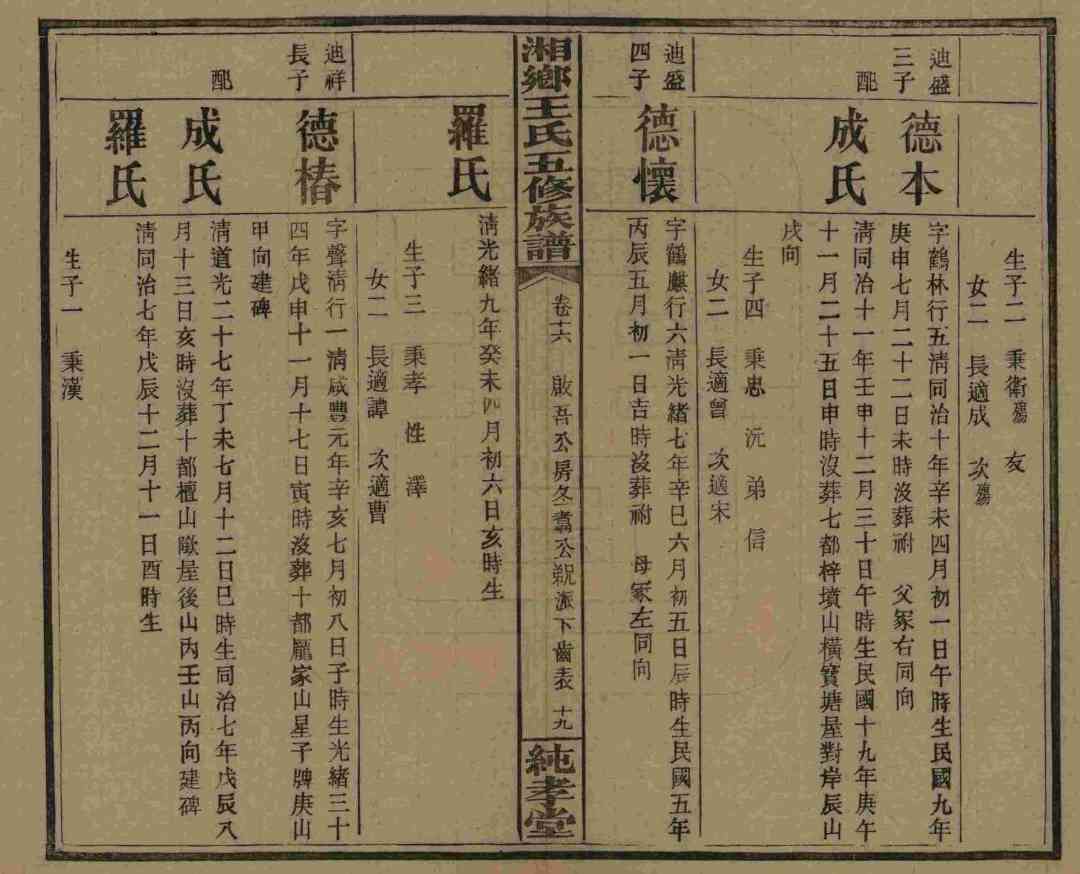 生子二 秉衛殤 友
女二 長適成 次殤
迪盛
三子
德本
字鶴林行五淸同治十年辛未四月初一日午時生民國九年
庚申七月二十二日未時沒葬祔 父冢右同向
配
成氏
淸同治十一年壬申十二月三十日午時生民國十九年庚午
十一月二十五日申時沒葬七都梓墳山橫寶塘屋對岸辰山
戌向
生子四 秉忠 沅 弟 信
女二 長適曾 次適宋
迪盛
四子
德懷
字鶴麒行六淸光緖七年辛巳六月初五日辰時生民國五年
丙辰五月初一日吉時沒葬祔 母冢左同向
湘鄉王氏五修族譜
卷十六 啟吾公房冬翥公
派下齒表 十九
純孝堂
羅氏
淸光緖九年癸未四月初六日亥時生
生子三 秉孝 性 澤
女二 長適譚 次適曹
迪祥
長子
德椿
字聲淸行一淸咸豐元年辛亥七月初八日子時生光緖三十
四年戊申十一月十七日寅時沒葬十都龎家山星子牌庚山
甲向建碑
配
成氏
淸道光二十七年丁未七月十二日巳時生同治七年戊辰八
月十三日亥時沒葬十都檀山歐屋後山丙壬山丙向建碑
羅氏
淸同治七年戊辰十二月十一日酉時生
生子一 秉漢